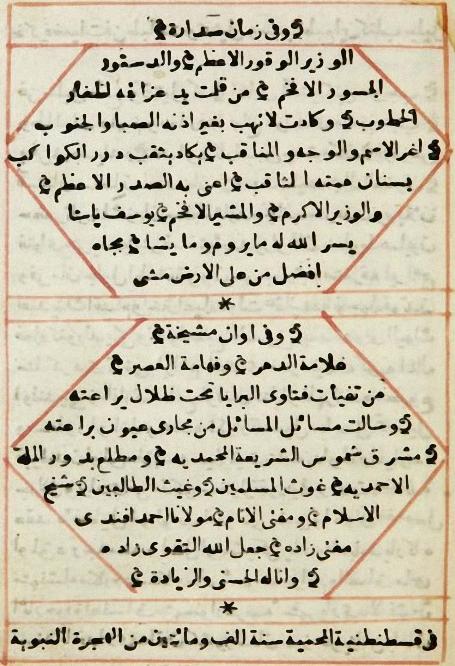 وفى زمان صدارة
الوزير الوقور الاعظم والدستور
الجسور الافخم من قلمت يد عزائمه اظفار
الخطوب وكادت لا تهب بغير اذنه الصبا والجنوب
اغر الاسم والوجه والمناقب يكاد يثقب درر الكواكب
بسنان همته الثاقب اعنى به الصدر الاعظم
والوزير الاكرم والمشير الافخم يوسف پاشا
يسر الله له ما يروم وما يشا بجاه
افضل من على الارض مشى
*
وفى اوان مشيخة
علامة الدهر وفهامة العصر
من تفيأت فتاوى البرايا تحت ظلال يراعته
وسالت مسائل المسائل من مجارى عيون براعته
مشرق شموس الشريعة المحمديه ومطلع بدور الملة
الاحمديه غوث المسلمين وغيث الطالبين شيخ
الاسلام ومفتى الانام مولانا احمد افندى
مفتى زاده جعل الله التقوى زاده
واناله الحسنى والزيادة
*
فى قسطنطنية المحمية سنة الف ومائتين من الهجرة النبوية